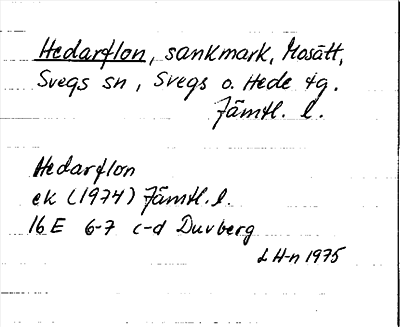 Hedarflon, sankmark, Mosätt,
Svegs sn, Svegs o. Hede tg.
Jämtl. l.
Hedarflon
ek (1974) Jämtl. l.
16 E 6-7 c-d Duvberg
L H-n 1975